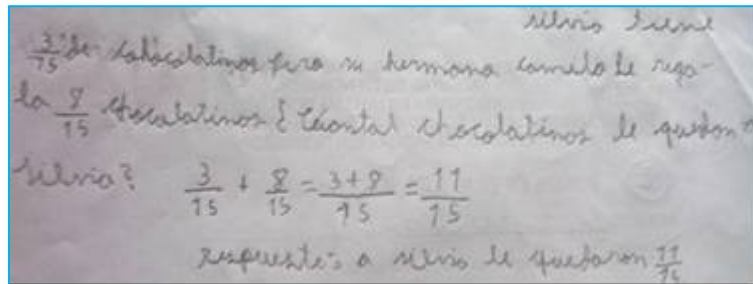 silvio tiene
3/15 de cahocolatinas pero su hermana camilo le rega-
la 8/15 chocolatinas ¿ Cuantal chocolatinas le quedan a
silvia? 3/15 + 8/15 = 3+8/15 = 11/15
respueste: a silvio le quedaron 11/15